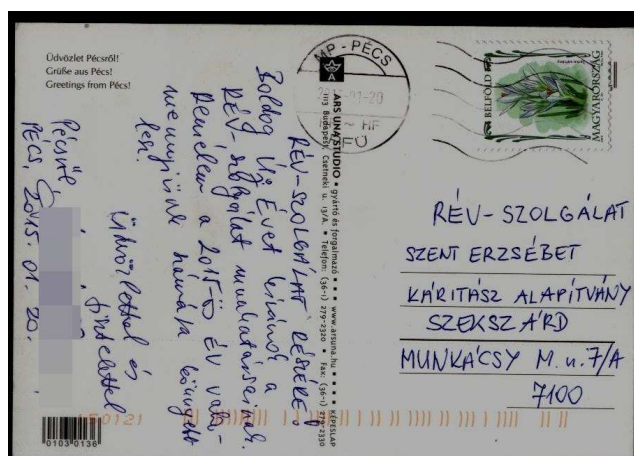 Üdvözlet Pécsről!
Grüße aus Pécs!
Greetings from Pécs!
MP - PÉCS
BELFÖLD
MAGYARORSZÁG
ARS UNA STUDIO • gyártó és forgalmazó • www.arsuna.hu • KÉPESLAP
1113 Budapest, Csetneki u. 13/A. • Telefon: (36-1) 279-2320 • Fax: (36-1) 279-2330
RÉV-SZOLGÁLAT RÉSZÉRE!
Boldog Új Évet kívánok a
RÉV-szolgálat munkatársainak.
Remélem a 2015-ös év
mennyivel könnyebb
lesz.
Üdvözlettel és
tisztelettel
Pécsről
PÉCS, 2015. 01. 20.
RÉV-SZOLGÁLAT
SZENT ERZSÉBET
KÁRITÁSZ ALAPÍTVÁNY
SZEKSZÁRD
MUNKÁCSY M. u. 7/A
7100
150121
01030136